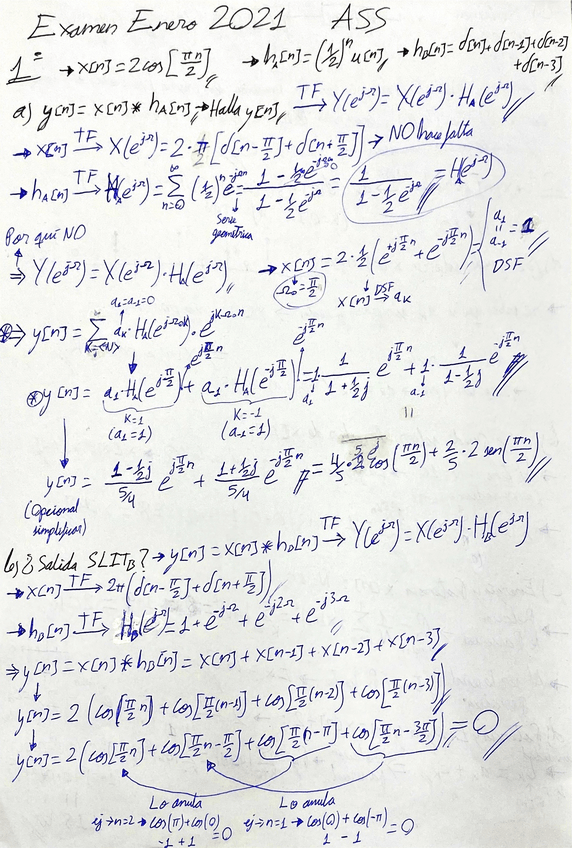 Examen Enero 2021 ASS
1º → x[n] = 2cos[πn/2] → hA[n] = (1/2)^n u[n] → hB[n] = d[n]+d[n-1]+d[n-2]
+d[n-3]
a) y[n] = x[n] * hA[n] → Halla y[n] TF→ Y(e^jΩ) = X(e^jΩ)·HA(e^jΩ)
→ x[n] TF→ X(e^jΩ) = 2·π[d[n-π/2]+d[n+π/2]] → NO hace falta
→ hA[n] TF→ HA(e^jΩ) = Σ n=0 ∞ (1/2)^n e^-jΩn = = 1/(1-1/2 e^-jΩ) = HA(e^jΩ)
Serie
geométrica
Por qué NO
⇒ Y(e^jΩ) = X(e^jΩ)·HA(e^jΩ) → x[n] = 2·1/2(e^jπ/2n + e^-jπ/2n) = a1 = a-1 = 1
Ω0 = π/2 x[n] DSF→ aK DSF
a0=a2=0
⊛⇒ y[n] = Σ K=<N> aK·HA(e^jΩ0K)·e^jKΩ0n
⊛ y[n] = a1·HA(e^jπ/2) e^jπ/2n + a-1·HA(e^-jπ/2) e^-jπ/2n = 1·1/(1+1/2j) e^jπ/2n + 1·1/(1-1/2j) e^-jπ/2n
K=1 K=-1 a1 a-1
(a1=1) (a-1=1)
y[n] = (1-1/2j)/(5/4) e^jπ/2n + (1+1/2j)/(5/4) e^-jπ/2n = 4/5·2cos(πn/2) + 2/5·2 sen(πn/2)
(Opcional
simplificar)
b) ¿Salida SLITB? → y[n] = x[n] * hB[n] TF→ Y(e^jΩ) = X(e^jΩ)·HB(e^jΩ)
→ x[n] TF→ 2π(d[n-π/2]+d[n+π/2])
→ hB[n] TF→ HB(e^jΩ) = 1+e^-jΩ + e^-j2Ω + e^-j3Ω
⇒ y[n] = x[n] * hB[n] = x[n] + x[n-1] + x[n-2] + x[n-3]
y[n] = 2(cos[π/2 n] + cos[π/2(n-1)] + cos[π/2(n-2)] + cos[π/2(n-3)])
y[n] = 2(cos[π/2 n] + cos[π/2 n-π/2] + cos[π/2 n-π] + cos[π/2 n-3π/2]) = 0
Lo anula Lo anula
ej→ n=2 → cos(π)+cos(0) = 0 ej→ n=1 → cos(0)+cos(-π) = 0
-1 + 1 1 - 1